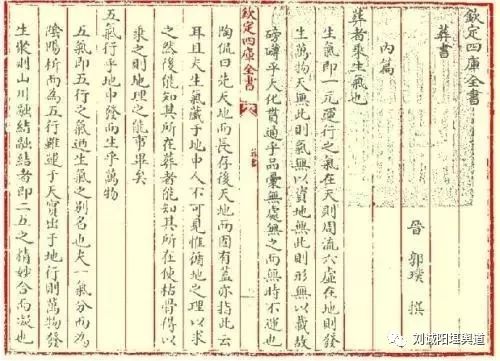 欽定四庫全書
葬書
晉 郭璞 撰
內篇
葬者乘生氣也
生氣即一元運行之氣在天則周流六虛在地則發
生萬物天無此則氣無以資地無此則形無以載故
磅礴乎大化貫通乎品彙無處無之而無時不運也
欽定四庫全書 葬書
陶侃曰先天地而長存後天地而固有蓋亦指此云
耳且夫生氣藏于地中人不可見惟循地之理以求
之然後能知其所在葬者能知其所在使枯骨得以
乘之則地理之能事畢矣
五氣行乎地中發而生乎萬物
五氣即五行之氣乃生氣之別名也夫一氣分而為
陰陽析而為五行雖運于天實出于地行則萬物發
生聚則山川融結融結者即二五之精妙合而凝也
刘诚阳堪舆道